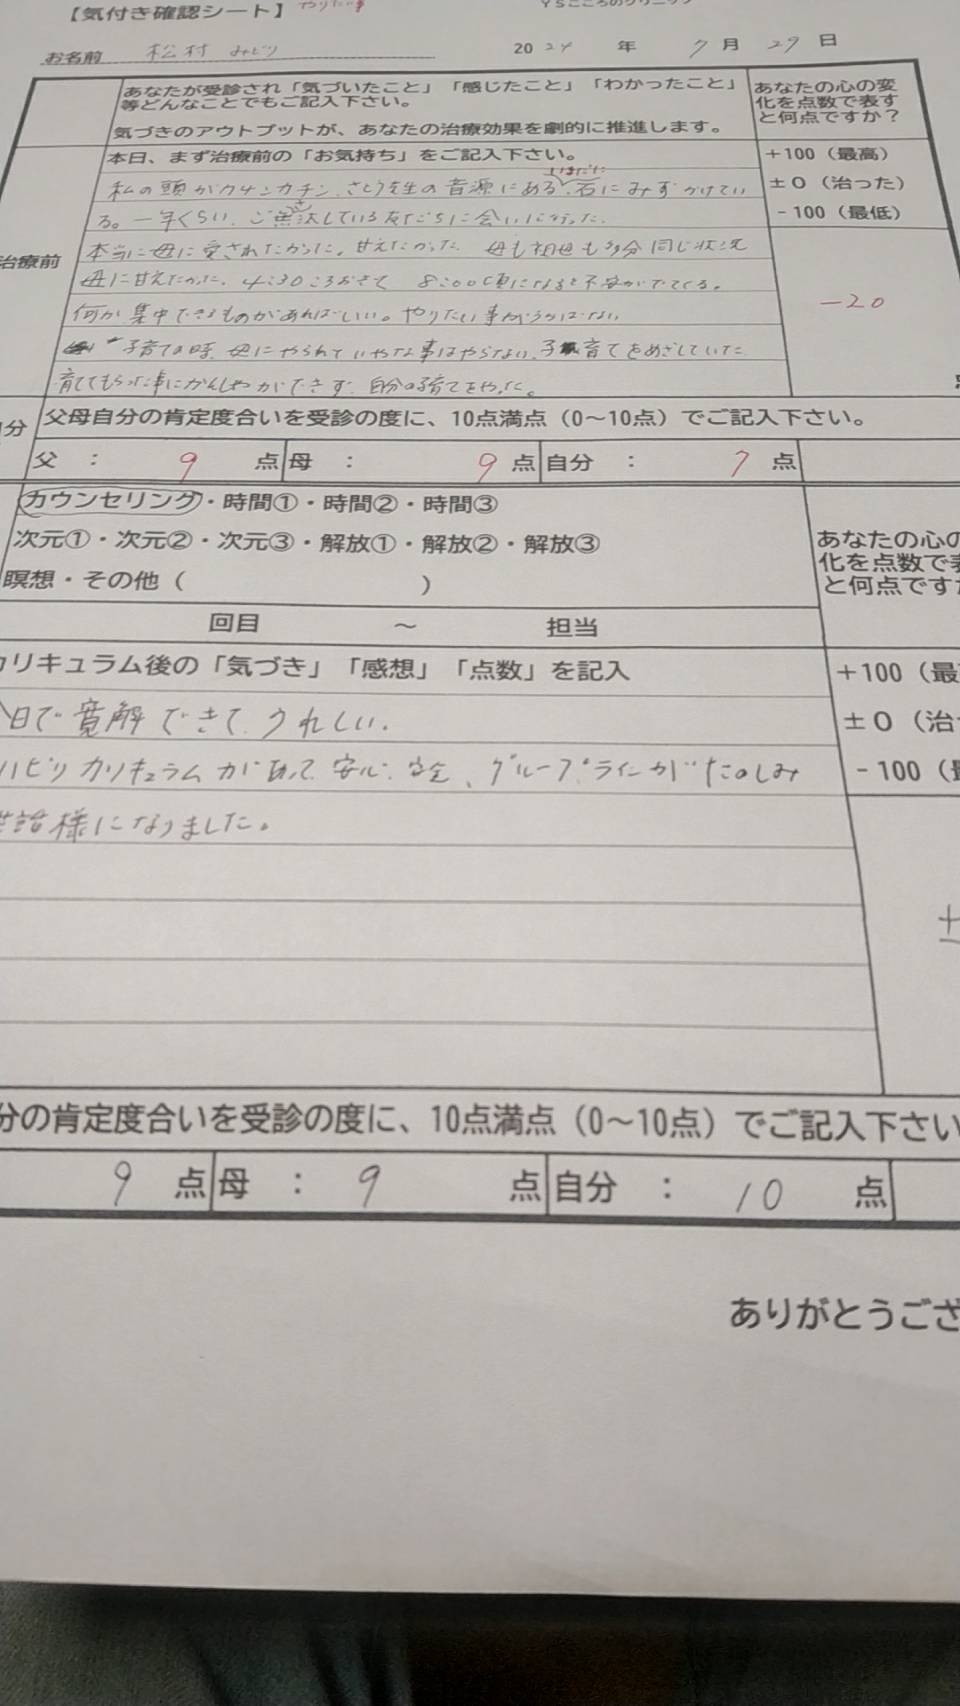 【気付き確認シート】 やりたい事
YSこころのクリニック
お名前 松村 みどり 2024年 7月 29日
あなたが受診され「気づいたこと」「感じたこと」「わかったこと」
等どんなことでもご記入下さい。
気づきのアウトプットが、あなたの治療効果を劇的に推進します。
あなたの心の変
化を点数で表す
と何点ですか？
治療前
本日、まず治療前の「お気持ち」をご記入下さい。
+100（最高）
±0（治った）
-100（最低）
私の頭がカチンカチン、さとう先生の音源にある、いまだに石にみずかけてい
る。一年くらい、ご無沙汰している友だちに会いに行った。
本当に母に愛されたかった。甘えたかった 母も祖母も多分同じ状況
母に甘えたかった、4:30ころおきて 8:00頃になると不安がでてくる。
何か集中できるものがあればいい。やりたい事がうかばない
子育ての時、母にやられていやな事はやらない、子育てをめざしていた
育ててもらった事にかんしゃができず、自分の子育てをやった。
-20
分
父母自分の肯定度合いを受診の度に、10点満点（0～10点）でご記入下さい。
父 ： 9 点 母 ： 9 点 自分 ： 7 点
カウンセリング・時間①・時間②・時間③
次元①・次元②・次元③・解放①・解放②・解放③
瞑想・その他（ ）
あなたの心の
化を点数で表
と何点です
回目 ～ 担当
カリキュラム後の「気づき」「感想」「点数」を記入
+100（最
±0（治
-100（最
今日で寛解できて、うれしい。
ハビリカリキュラムがあって、安心、安全、グループラインがたのしみ
様になりました。
±
分の肯定度合いを受診の度に、10点満点（0～10点）でご記入下さい
9 点 母 ： 9 点 自分 ： 10 点
ありがとうござ